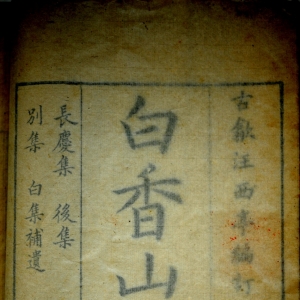 古歙汪西亭編訂
白香山
長慶集 後集
別集 白集補遺